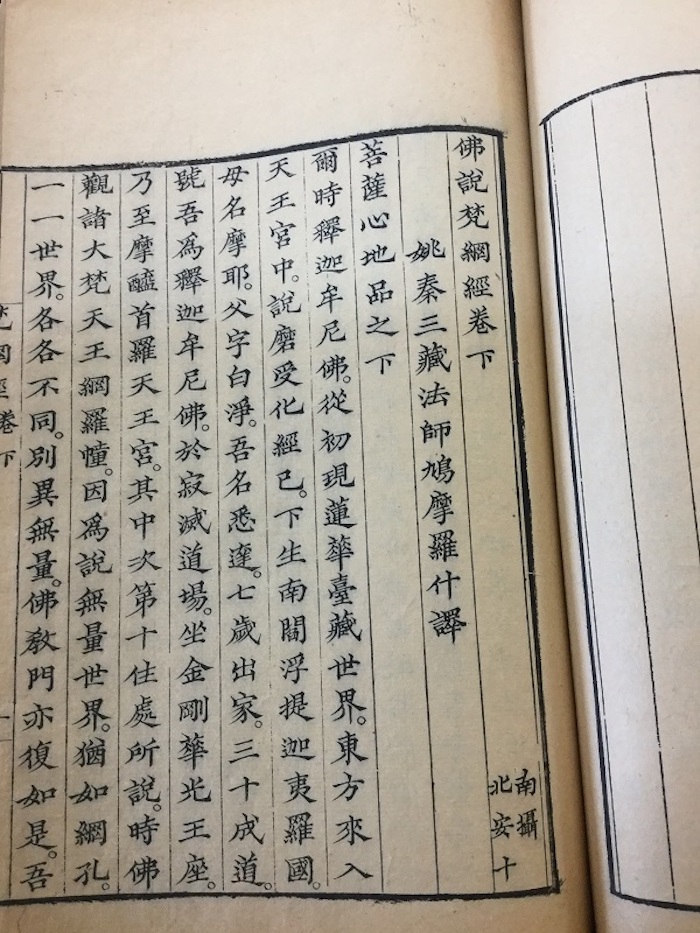 佛說梵網經卷下
南攝
北安
十
姚秦三藏法師鳩摩羅什譯
菩薩心地品之下
爾時釋迦牟尼佛。從初現蓮華臺藏世界。東方來入
天王宮中。說磨受化經已。下生南閻浮提迦夷羅國。
母名摩耶。父字白淨。吾名悉達。七歲出家。三十成道。
號吾爲釋迦牟尼佛。於寂滅道場。坐金剛華光王座。
乃至摩醯首羅天王宮。其中次第十住處所說。時佛
觀諸大梵天王網羅幢。因爲說無量世界。猶如網孔。
一一世界。各各不同。別異無量。佛敎門亦復如是。吾
梵網經卷下
一